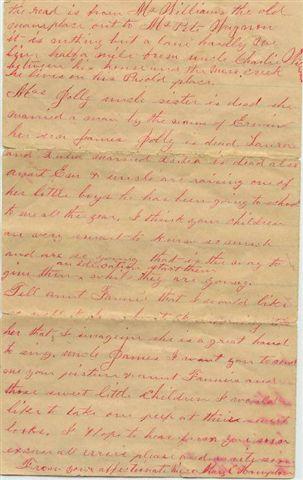 the road is from Mr Williams the old
place out to Mr Pete
it is nothing but a lane hardly
live half a mile from uncle Charlie
his house and the creek
he lives on his place.
Mrs Polly uncle sister is dead she
married a man by the name of
her son James Polly is dead Laura
and married is dead also
aunt Em & uncle are raising one of
her little boys he has been going to school
to me all the year. I think your children
are very smart to know so much
and are so young that is the way to
an education start them
give them while they are young.
Tell aunt Fannie that I would like
her that, I imagine she is a great hand
to sing. uncle James I want you to send
me your picture & aunt Fannies and
those sweet little children I would
like to take one peep at their sweet
looks. I hope to hear from you soon
excuse all errors please and write soon
From your affectionate niece Mary